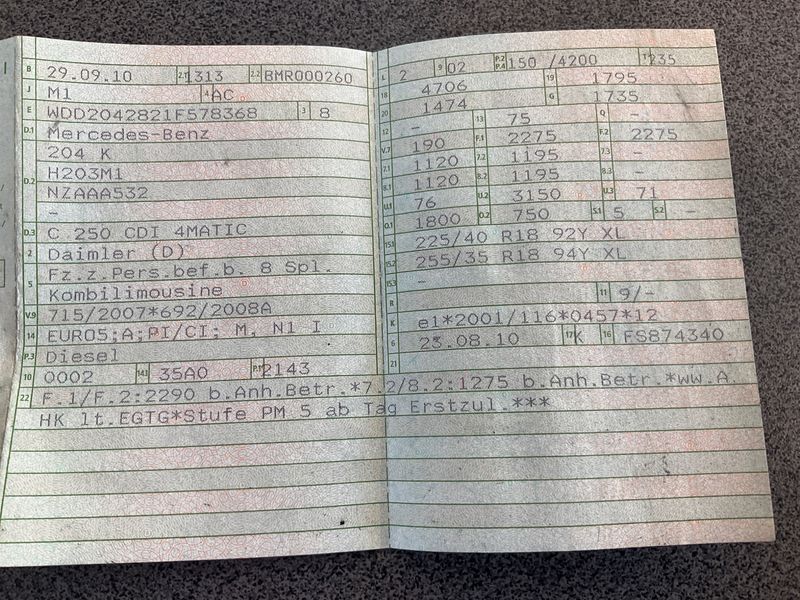 B 29.09.10 2.1 1313 2.2 BMR000260
J M1 4 AC
E WDD2042821F578368 3 8
D.1 Mercedes-Benz
204 K
D.2 H2O3M1
NZAAA532
-
D.3 C 250 CDI 4MATIC
2 Daimler (D)
5 Fz.z.Pers.bef.b. 8 Spl.
Kombilimousine
V.9 715/2007*692/2008A
14 EURO5;A;PI/CI; M, N1 I
P.3 Diesel
10 0002 14.1 35A0 P.1 2143
L 2 9 02 P.2 P.4 150 /4200 T 235
18 4706 19 1795
20 1474 G 1735
12 - 13 75 Q -
V.7 190 F.1 2275 F.2 2275
7.1 1120 7.2 1195 7.3 -
8.1 1120 8.2 1195 8.3 -
U.1 76 U.2 3150 U.3 71
O.1 1800 O.2 750 S.1 5 S.2 -
15.1 225/40 R18 92Y XL
15.2 255/35 R18 94Y XL
15.3 -
R 11 9/-
K e1*2001/116*0457*12
6 23.08.10 17 K 16 FS874340
21
22 F.1/F.2:2290 b.Anh.Betr.*7.2/8.2:1275 b.Anh.Betr.*ww.A
HK lt.EGTG*Stufe PM 5 ab Tag Erstzul.***